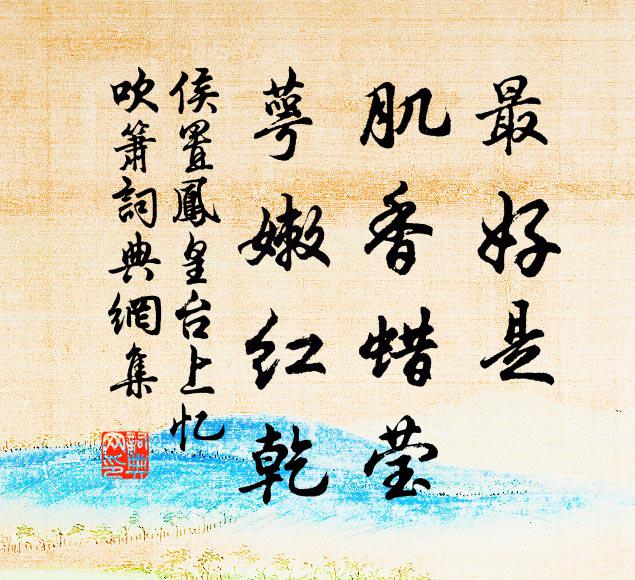 最好是
肌香蜡莹
萼嫩红乾
侯置鳳皇台上忆
吹簫詞典網集